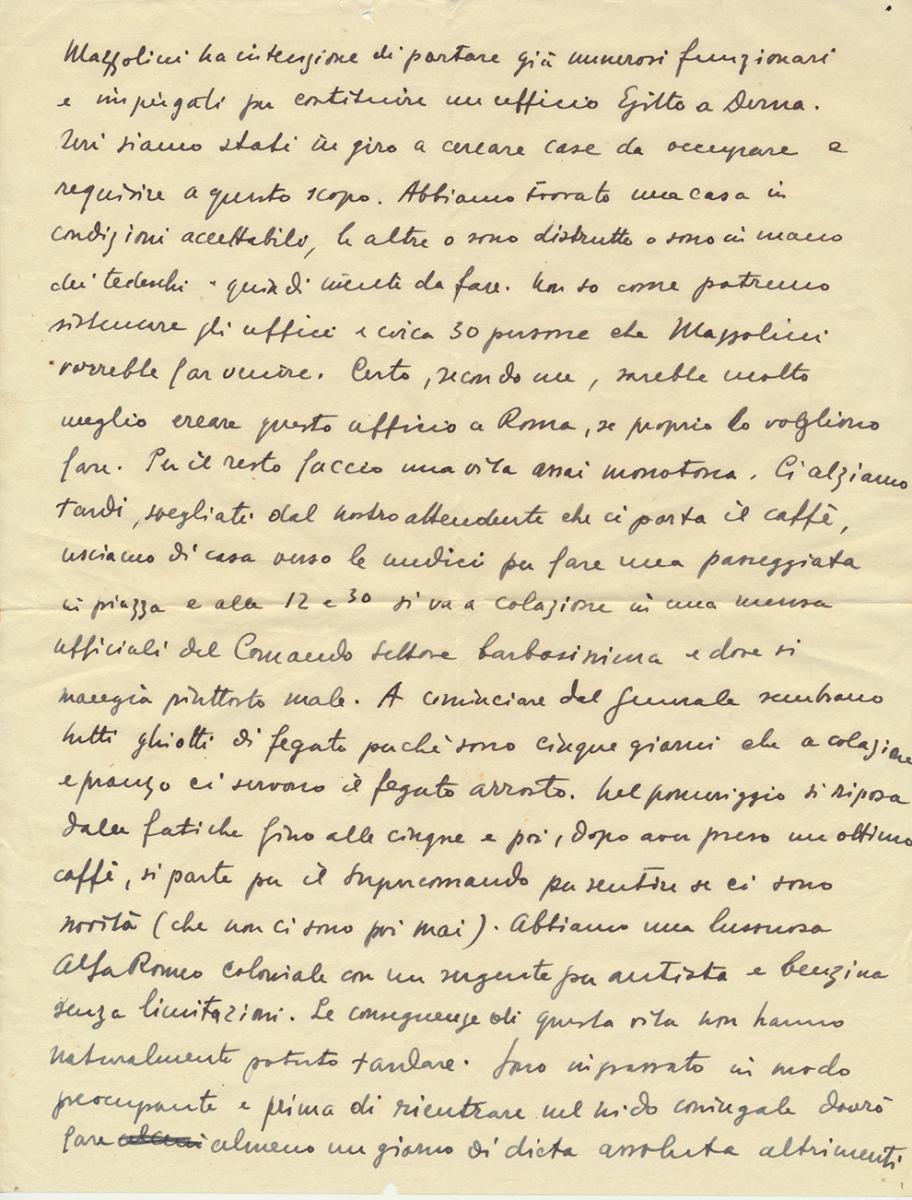 Mazzolini ha intenzione di portare già numerosi funzionari
e impiegati per costituire un ufficio Egitto a Derna.
Ieri siamo stati in giro a cercare case da occupare e
requisire a questo scopo. Abbiamo trovato una casa in
condizioni accettabili, le altre o sono distrutte o sono in mano
dei tedeschi - quindi niente da fare. Non so come potremo
sistemare gli uffici e circa 30 persone che Mazzolini
vorrebbe far venire. Certo, secondo me, sarebbe molto
meglio creare questo ufficio a Roma, se proprio lo vogliono
fare. Per il resto faccio una vita assai monotona. Ci alziamo
tardi, svegliati dal nostro attendente che ci porta il caffè,
usciamo di casa verso le undici per fare una passeggiata
in piazza e alle 12 e 30 si va a colazione in una mensa
ufficiali del Comando Settore barbosissima e dove si
mangia piuttosto male. A cominciare dal Generale sembrano
tutti ghiotti di fegato perché sono cinque giorni che a colazione
e pranzo ci servono il fegato arrosto. Nel pomeriggio si riposa
dalle fatiche fino alle cinque e poi, dopo aver preso un ottimo
caffè, si parte per il Supercomando per sentire se ci sono
novità (che non ci sono poi mai). Abbiamo una lussuosa
Alfa Romeo coloniale con un sergente per autista e benzina
senza limitazioni. Le conseguenze di questa vita non hanno
naturalmente potuto tardare. Sono ingrassato in modo
preoccupante e prima di rientrare nel nido coniugale dovrò
fare almeno un giorno di dieta assoluta altrimenti